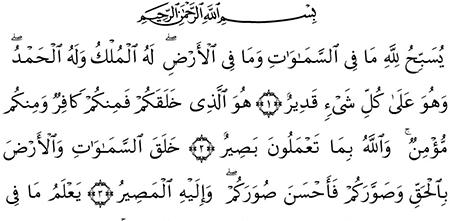 بِسْمِ ٱللَّهِ ٱلرَّحْمَٰنِ ٱلرَّحِيمِ
يُسَبِّحُ لِلَّهِ مَا فِى ٱلسَّمَـٰوَٰتِ وَمَا فِى ٱلْأَرْضِ ۖ لَهُ ٱلْمُلْكُ وَلَهُ ٱلْحَمْدُ ۖ
وَهُوَ عَلَىٰ كُلِّ شَىْءٍ قَدِيرٌ ﴿١﴾ هُوَ ٱلَّذِى خَلَقَكُمْ فَمِنكُمْ كَافِرٌ وَمِنكُم
مُّؤْمِنٌ ۚ وَٱللَّهُ بِمَا تَعْمَلُونَ بَصِيرٌ ﴿٢﴾ خَلَقَ ٱلسَّمَـٰوَٰتِ وَٱلْأَرْضَ
بِٱلْحَقِّ وَصَوَّرَكُمْ فَأَحْسَنَ صُوَرَكُمْ ۖ وَإِلَيْهِ ٱلْمَصِيرُ ﴿٣﴾ يَعْلَمُ مَا فِى